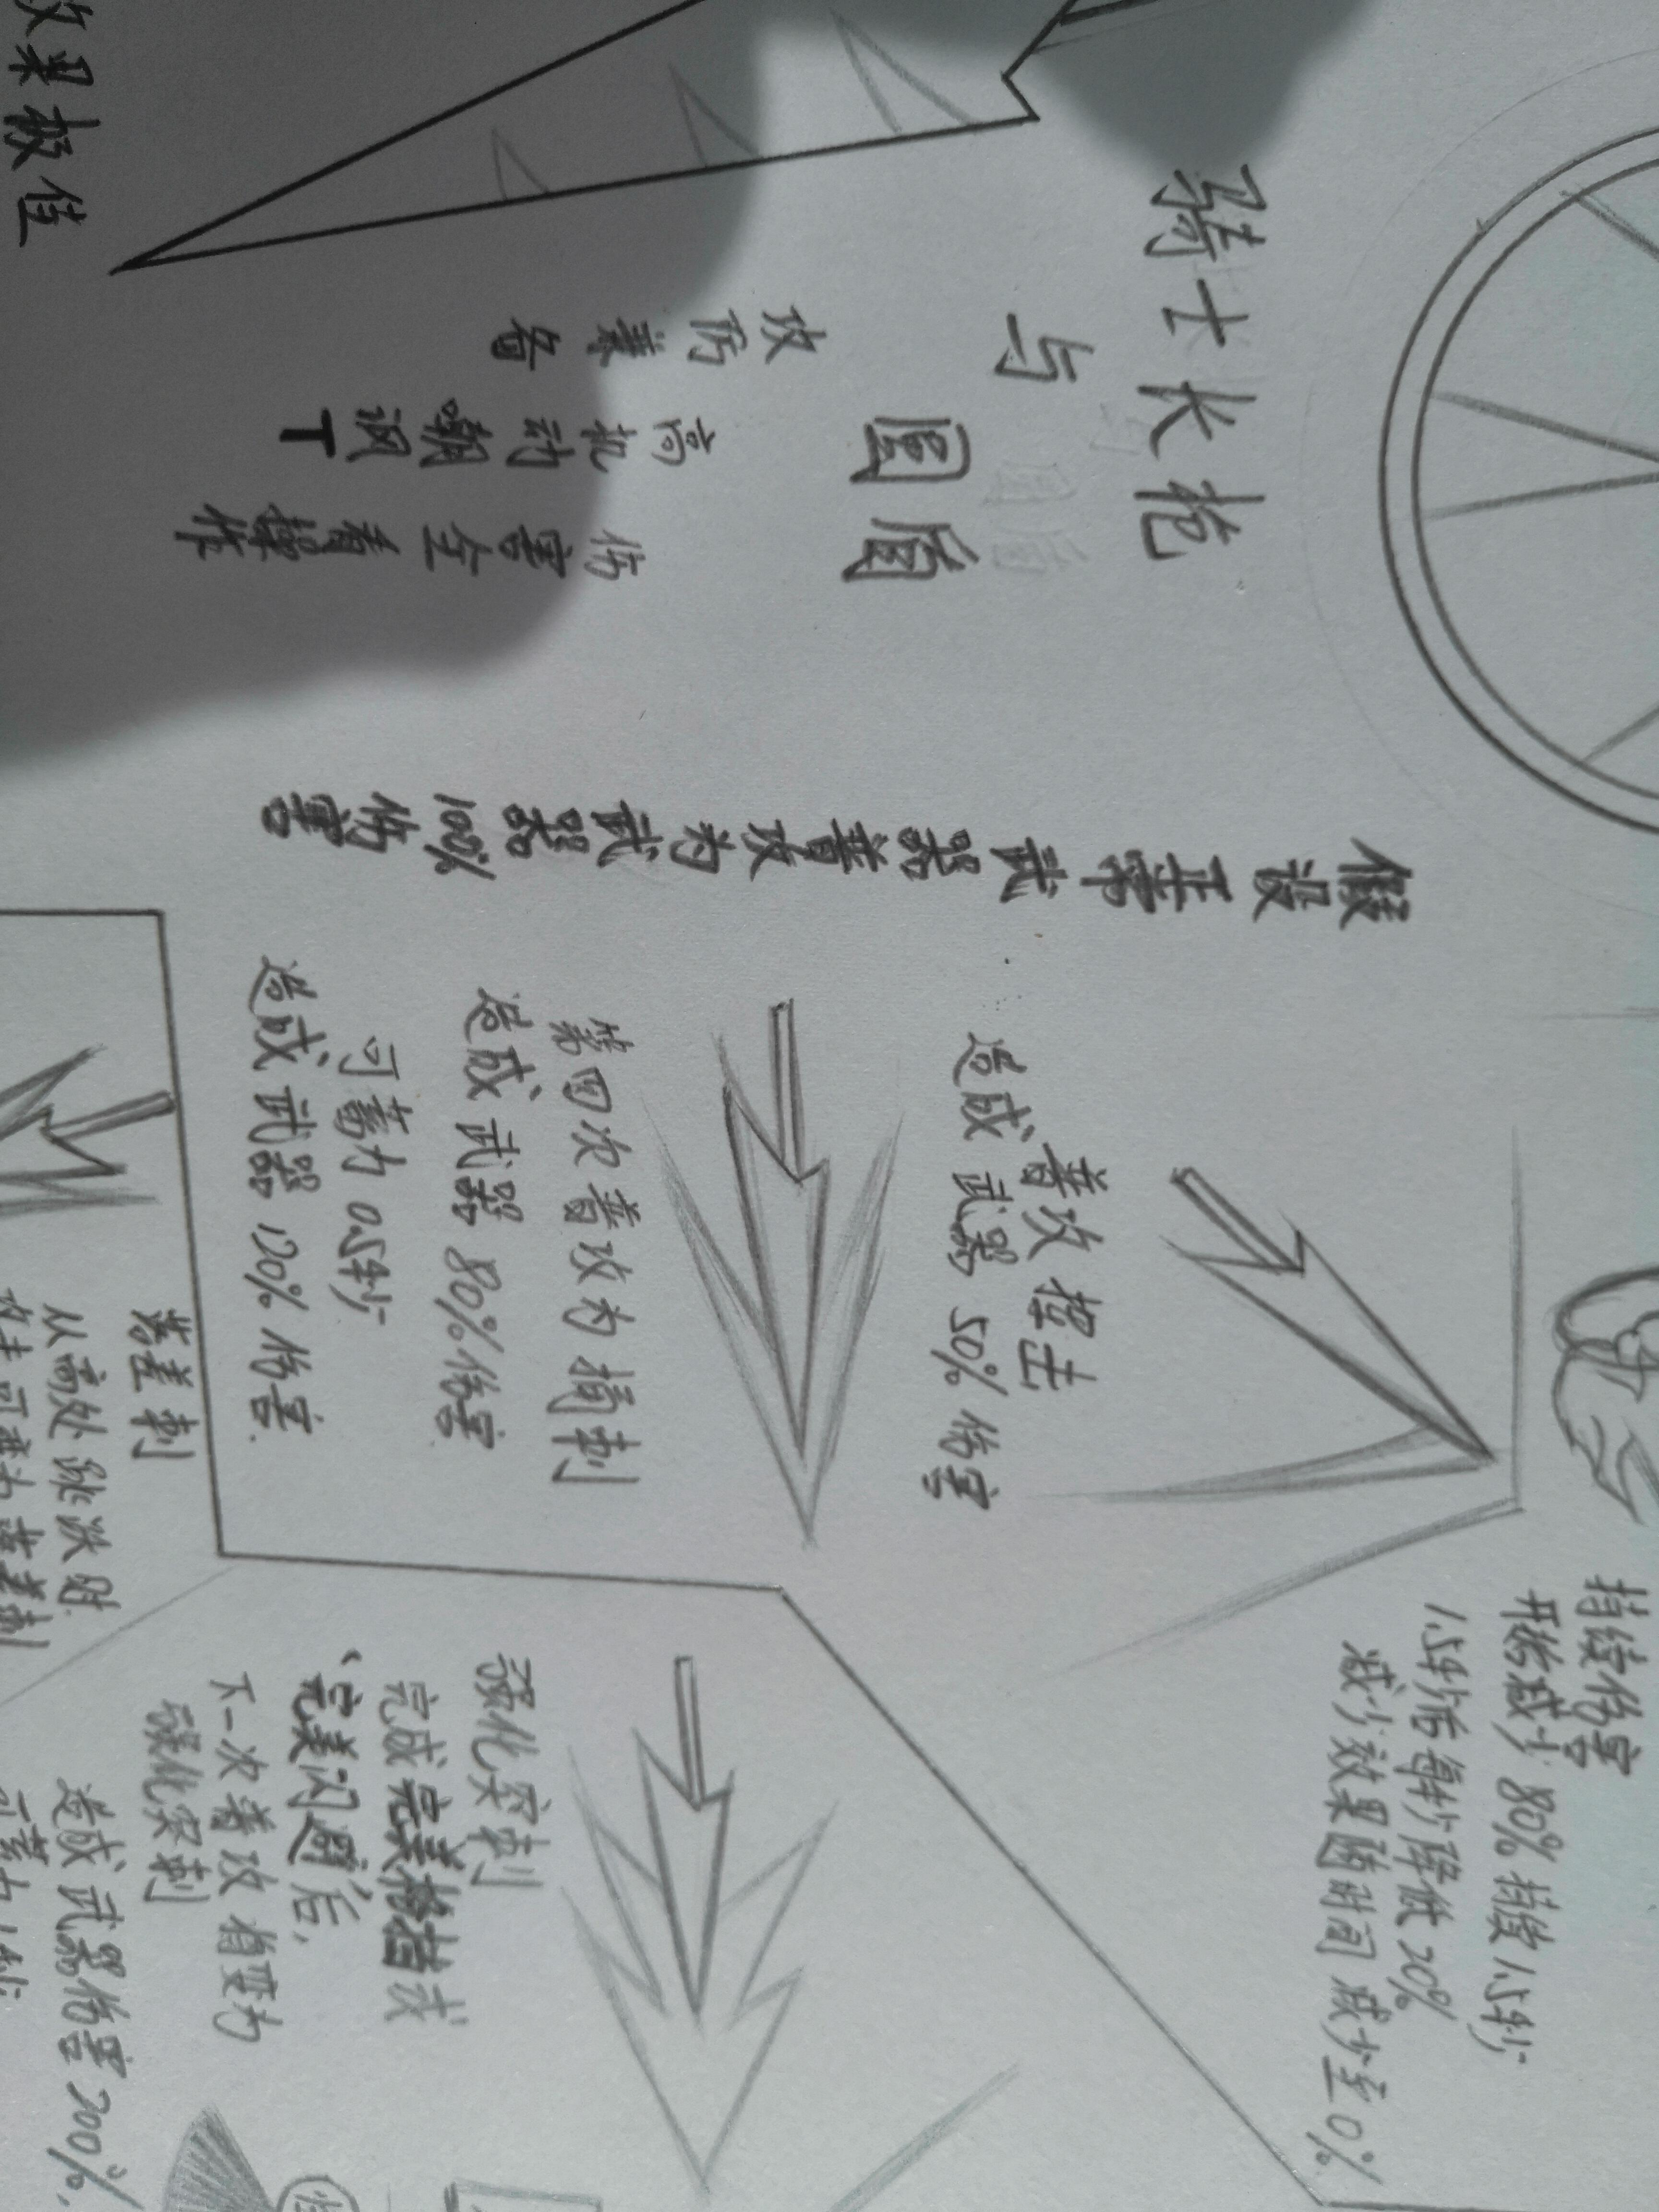 骑士长枪
与
圆盾
攻防兼备
高机动嘲讽T
伤害全看操作
效果极佳
假设正常武器普攻为武器100%伤害
普攻挥击
造成武器50%伤害
第四次普攻为捅刺
造成武器80%伤害
可蓄力0.5秒
造成武器120%伤害
落差刺
从高处跳跃时
持续伤害
开始减少80%持续1.5秒
1.5秒后每秒降低20%
减少效果随时间减少至0%
强化突刺
完成完美格挡或
完美闪避后,
下一次普攻将变为
强化突刺
造成武器伤害200%,